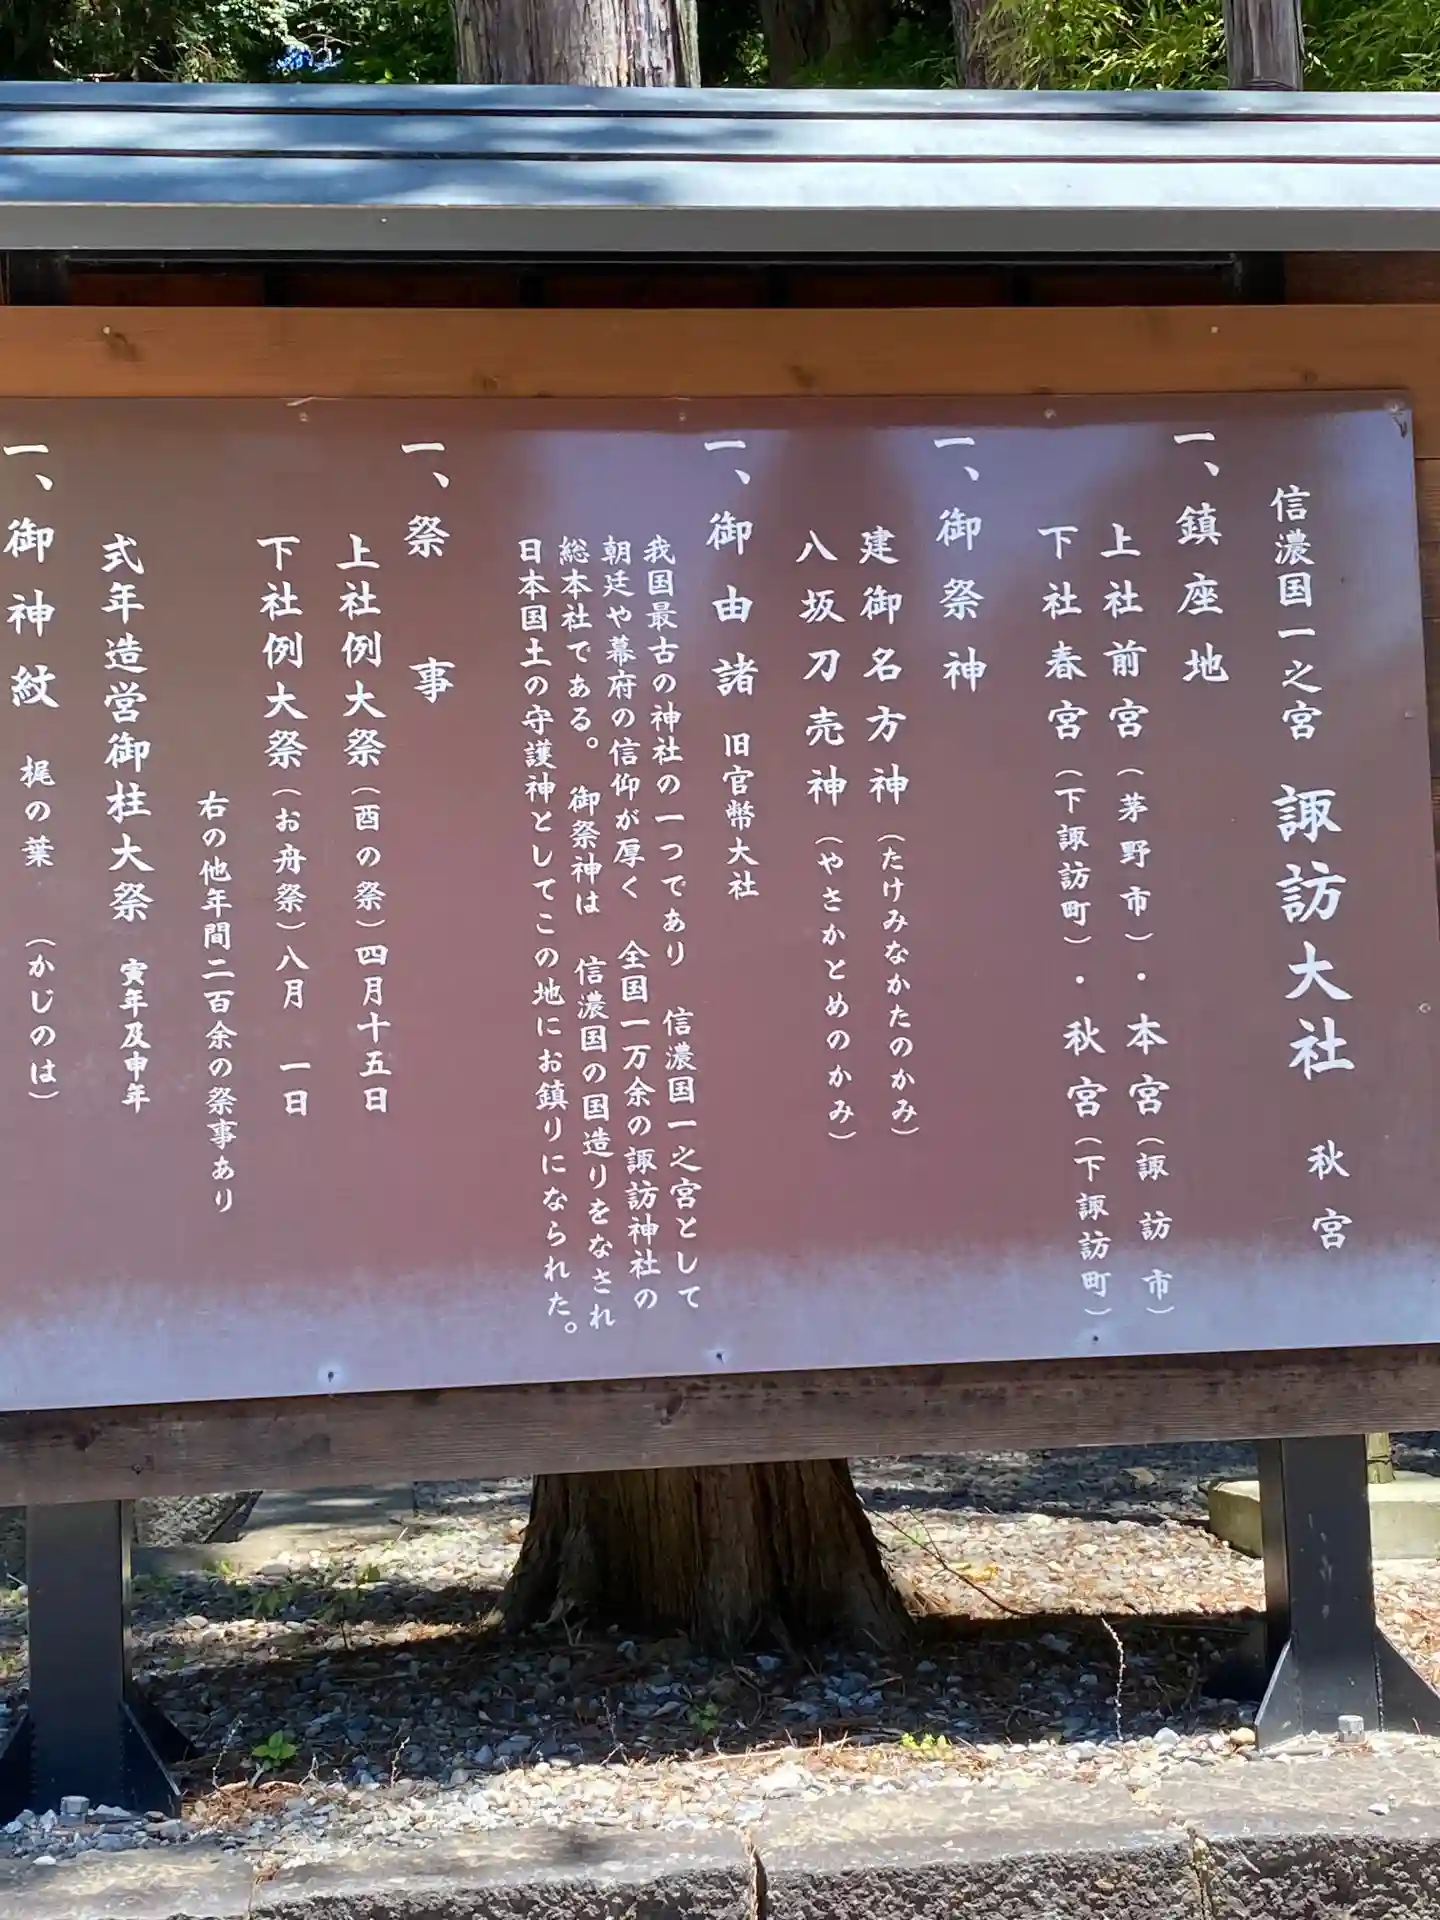 信濃国一之宮 諏訪大社 秋宮
一、鎮座地
上社前宮(茅野市)・本宮(諏訪市)
下社春宮(下諏訪町)・秋宮(下諏訪町)
一、御祭神
建御名方神(たけみなかたのかみ)
八坂刀売神(やさかとめのかみ)
一、御由諸 旧官幣大社
我国最古の神社の一つであり 信濃国一之宮として
朝廷や幕府の信仰が厚く 全国一万余の諏訪神社の
総本社である。 御祭神は 信濃国の国造りをなされ
日本国土の守護神としてこの地にお鎮りになられた。
一、祭事
上社例大祭(酉の祭)四月十五日
下社例大祭(お舟祭)八月 一日
右の他年間二百余の祭事あり
式年造営御柱大祭 寅年及申年
一、御神紋 梶の葉 (かじのは)